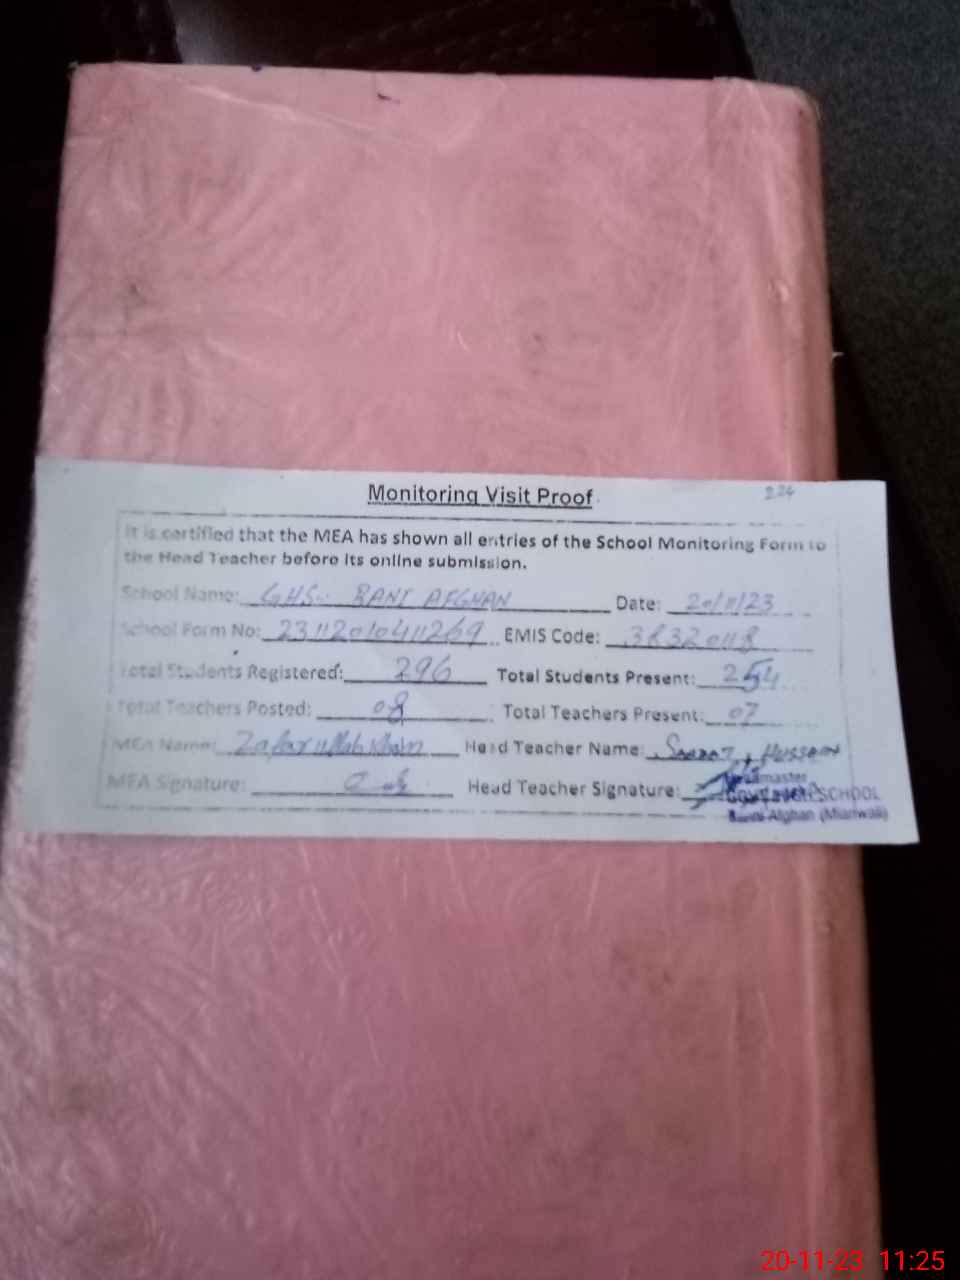 Monitoring Visit Proof
224
It is certified that the MEA has shown all entries of the School Monitoring Form to
the Head Teacher before its online submission.
School Name: GHS. BANI AFGHAN Date: 20/11/23
School Form No: 23112010411269 EMIS Code: 38320118
Total Students Registered: 296 Total Students Present: 254
Total Teachers Posted: 08 Total Teachers Present: 07
MEA Name: Zafar ullah Khan Head Teacher Name: HUSSAIN
MEA Signature: Head Teacher Signature:
Headmaster
GOVT HIGH SCHOOL
Banni Afghan (Mianwali)
20-11-23 11:25